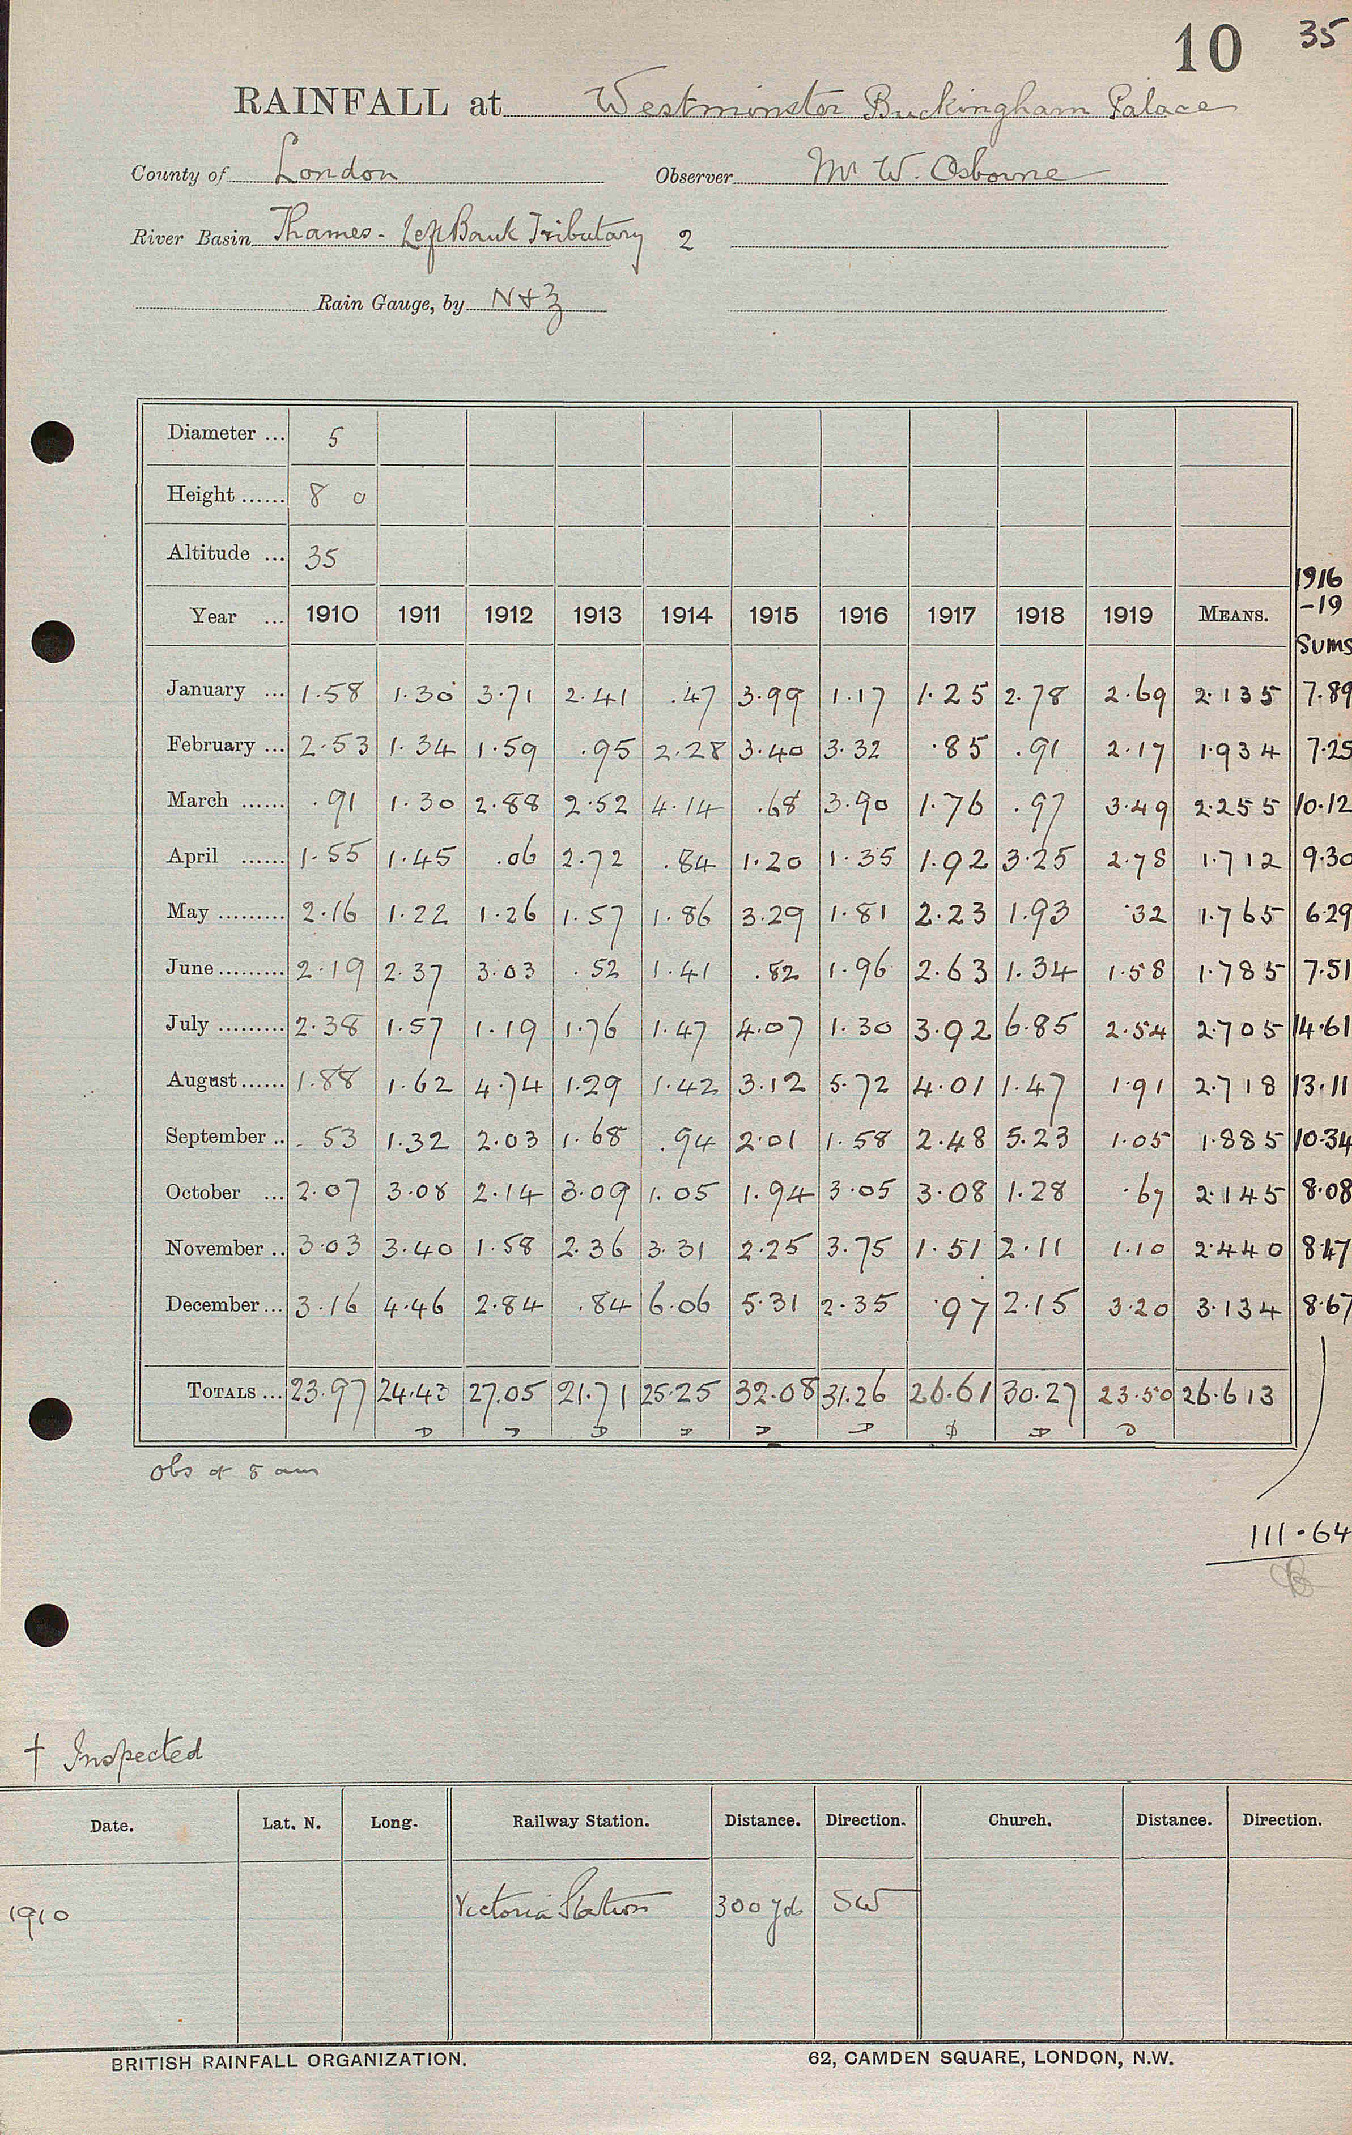 10 35
RAINFALL at Westminster Buckingham Palace
County of London Observer Mr W. Osborne
River Basin Thames - Left Bank Tributary 2
Rain Gauge, by N & Z
Diameter ... 5
Height ...... 8 0
Altitude ... 35
1916
Year ... 1910 1911 1912 1913 1914 1915 1916 1917 1918 1919 MEANS. -19
Sums
January ... 1.58 1.30 3.71 2.41 .47 3.99 1.17 1.25 2.78 2.69 2.135 7.89
February ... 2.53 1.34 1.59 .95 2.28 3.40 3.32 .85 .91 2.17 1.934 7.25
March ...... .91 1.30 2.88 2.52 4.14 .68 3.90 1.76 .97 3.49 2.255 10.12
April ...... 1.55 1.45 .06 2.72 .84 1.20 1.35 1.92 3.25 2.78 1.712 9.30
May ......... 2.16 1.22 1.26 1.57 1.86 3.29 1.81 2.23 1.93 .32 1.765 6.29
June ......... 2.19 2.37 3.03 .52 1.41 .82 1.96 2.63 1.34 1.58 1.785 7.51
July ......... 2.38 1.57 1.19 1.76 1.47 4.07 1.30 3.92 6.85 2.54 2.705 14.61
August ...... 1.88 1.62 4.74 1.29 1.42 3.12 5.72 4.01 1.47 1.91 2.718 13.11
September .. .53 1.32 2.03 1.68 .94 2.01 1.58 2.48 5.23 1.05 1.885 10.34
October ... 2.07 3.08 2.14 3.09 1.05 1.94 3.05 3.08 1.28 .67 2.145 8.08
November .. 3.03 3.40 1.58 2.36 3.31 2.25 3.75 1.51 2.11 1.10 2.440 8.47
December ... 3.16 4.46 2.84 .84 6.06 5.31 2.35 .97 2.15 3.20 3.134 8.67
TOTALS ... 23.97 24.43 27.05 21.71 25.25 32.08 31.26 26.61 30.27 23.50 26.613
obs at 8 am
111.64
† Inspected
Date. Lat. N. Long. Railway Station. Distance. Direction. Church. Distance. Direction.
1910 Victoria Station 300 yds SW
BRITISH RAINFALL ORGANIZATION. 62, CAMDEN SQUARE, LONDON, N.W.